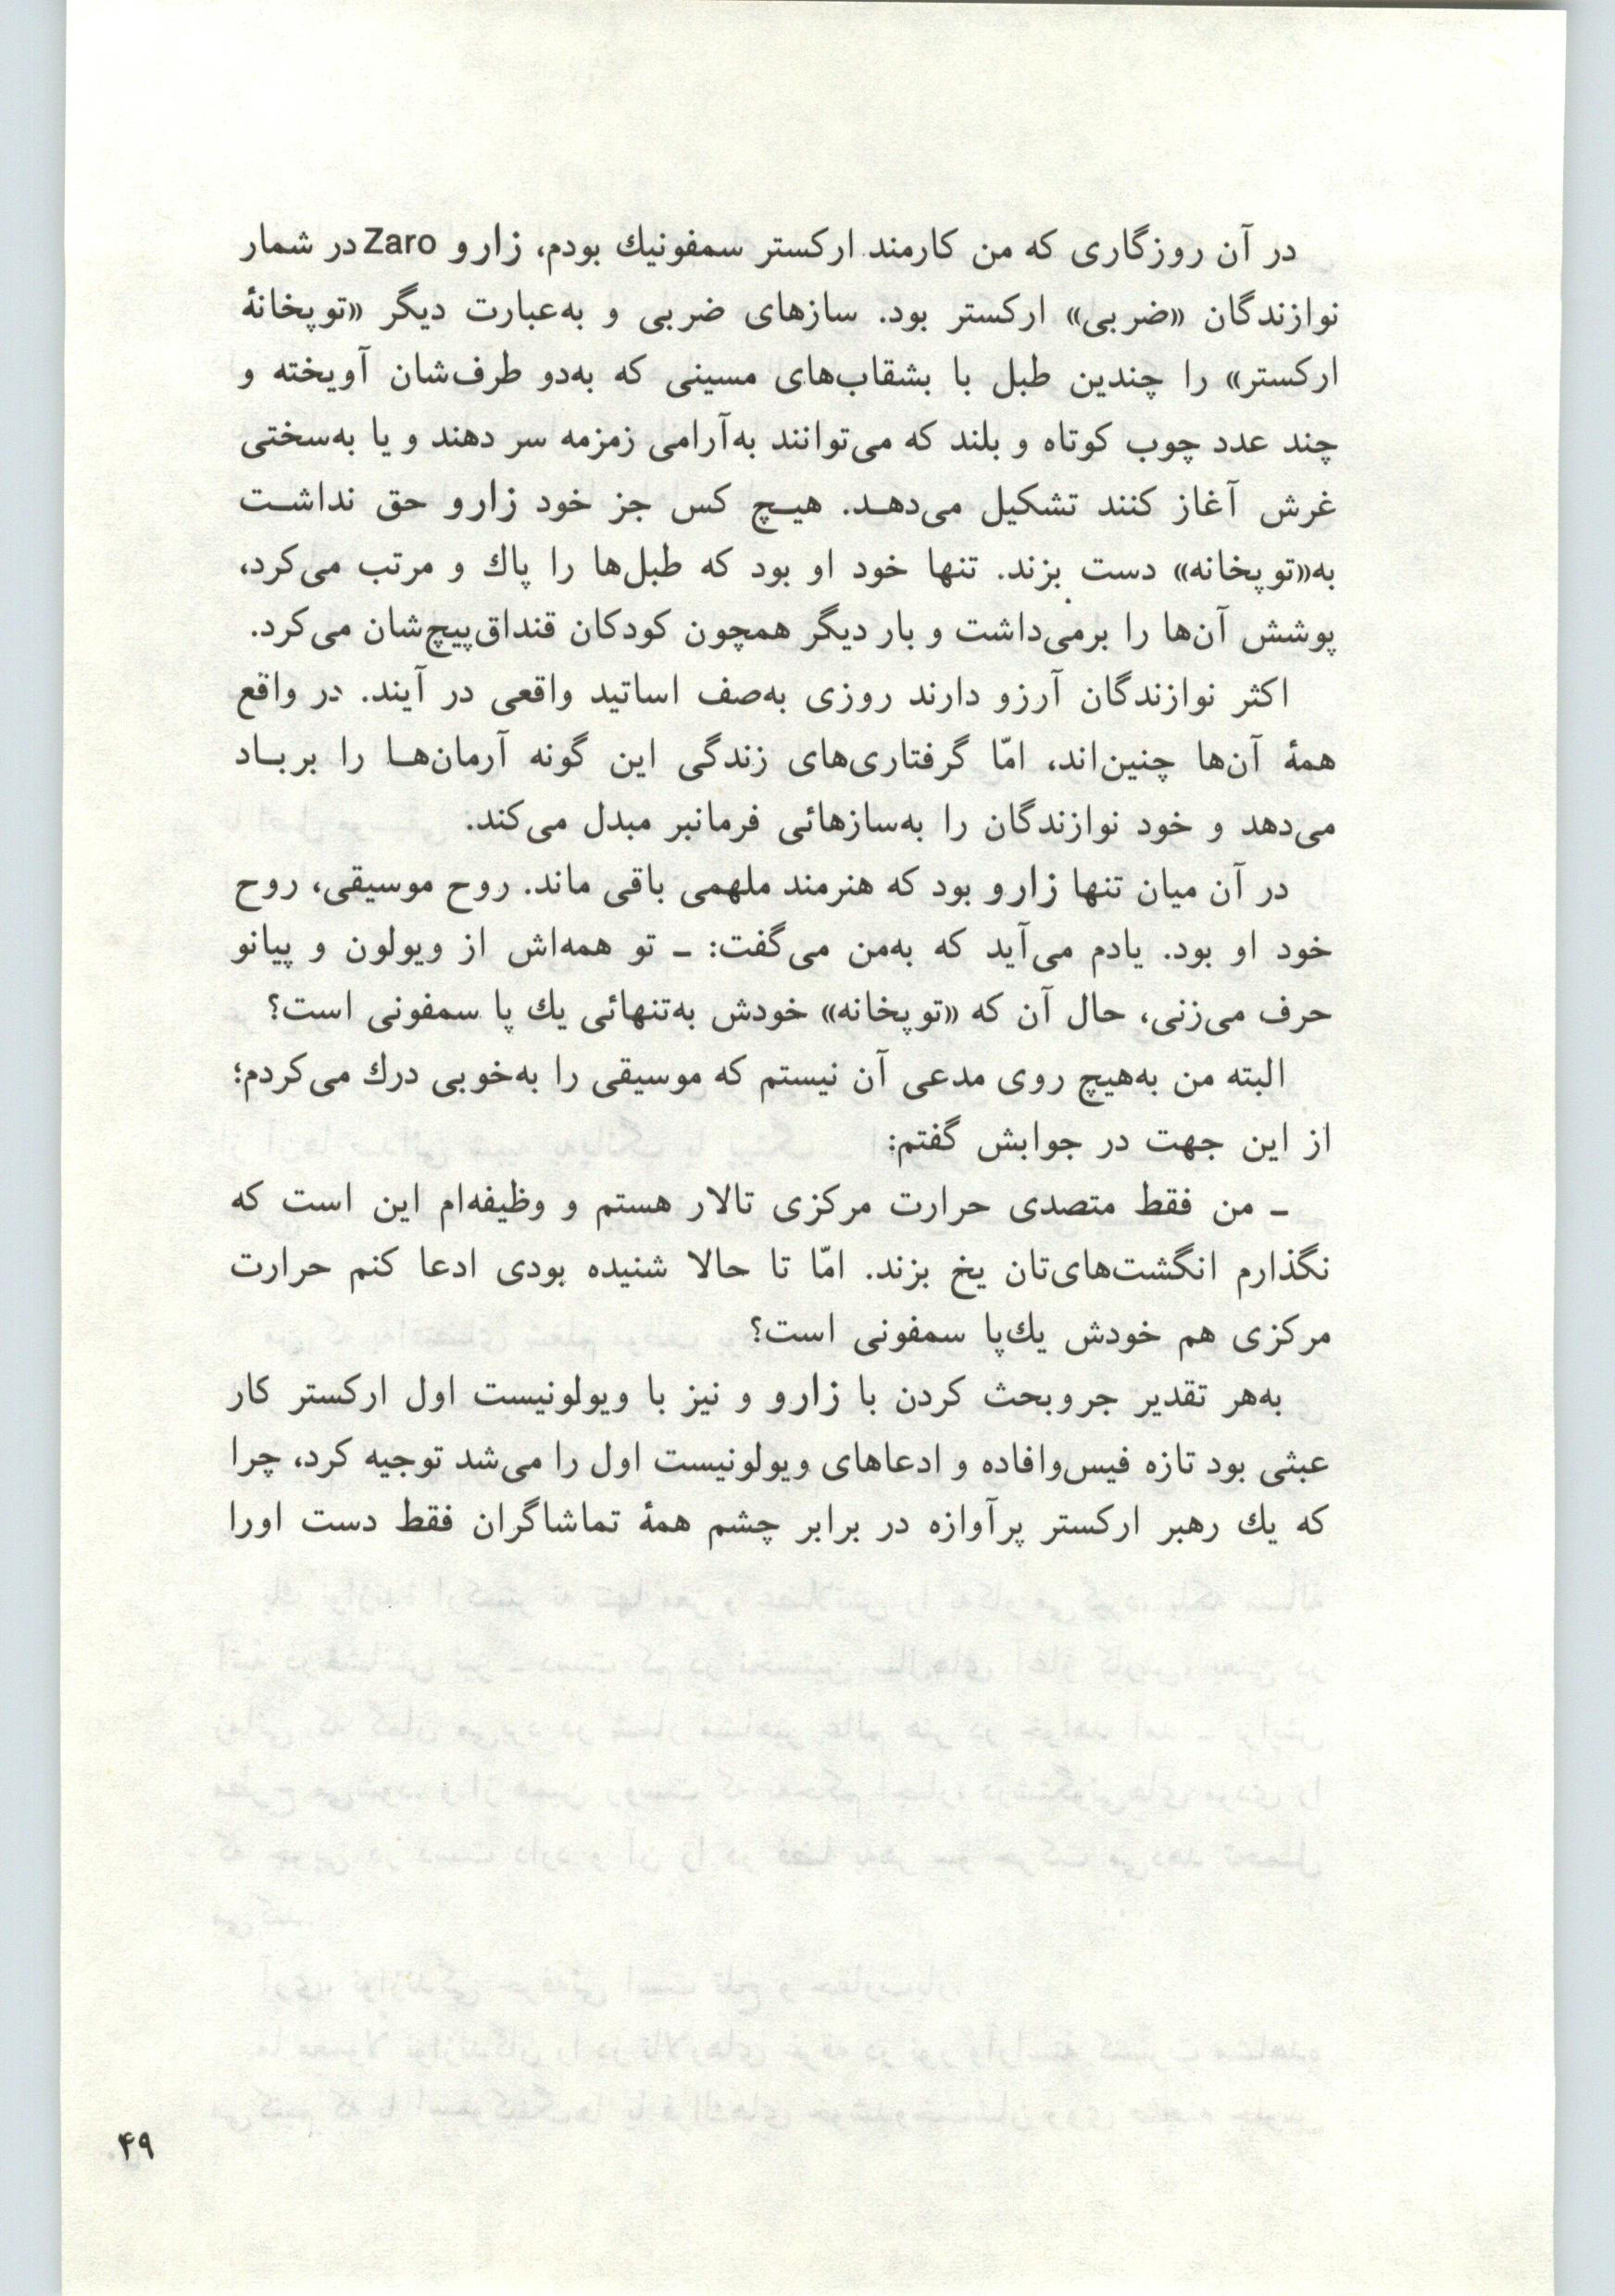 در آن روزگاری که من کارمند ارکستر سمفونیك بودم، زارو Zaro در شمار
نوازندگان «ضربی» ارکستر بود. سازهای ضربی و به‌عبارت دیگر «توپخانهٔ
ارکستر» را چندین طبل با بشقاب‌های مسینی که به‌دو طرف‌شان آویخته و
چند عدد چوب کوتاه و بلند که می‌توانند به‌آرامی زمزمه سر دهند و یا به‌سختی
غرش آغاز کنند تشکیل می‌دهـد. هیـچ کس جز خود زارو حق نداشـت
به«توپخانه» دست بزند. تنها خود او بود که طبل‌ها را پاك و مرتب می‌کرد،
پوشش آن‌ها را برمی‌داشت و بار دیگر همچون کودکان قنداق‌پیچ‌شان می‌کرد.
اکثر نوازندگان آرزو دارند روزی به‌صف اساتید واقعی در آیند. در واقع
همهٔ آن‌ها چنین‌اند، امّا گرفتاری‌های زندگی این گونه آرمان‌هـا را بربـاد
می‌دهد و خود نوازندگان را به‌سازهائی فرمانبر مبدل می‌کند.
در آن میان تنها زارو بود که هنرمند ملهمی باقی ماند. روح موسیقی، روح
خود او بود. یادم می‌آید که به‌من می‌گفت: ـ تو همه‌اش از ویولون و پیانو
حرف می‌زنی، حال آن که «توپخانه» خودش به‌تنهائی یك پا سمفونی است؟
البته من به‌هیچ روی مدعی آن نیستم که موسیقی را به‌خوبی درك می‌کردم؛
از این جهت در جوابش گفتم:
ـ من فقط متصدی حرارت مرکزی تالار هستم و وظیفه‌ام این است که
نگذارم انگشت‌های‌تان یخ بزند. امّا تا حالا شنیده بودی ادعا کنم حرارت
مرکزی هم خودش یك‌پا سمفونی است؟
به‌هر تقدیر جروبحث کردن با زارو و نیز با ویولونیست اول ارکستر کار
عبثی بود تازه فیس‌وافاده و ادعاهای ویولونیست اول را می‌شد توجیه کرد، چرا
که یك رهبر ارکستر پرآوازه در برابر چشم همهٔ تماشاگران فقط دست اورا
۴۹